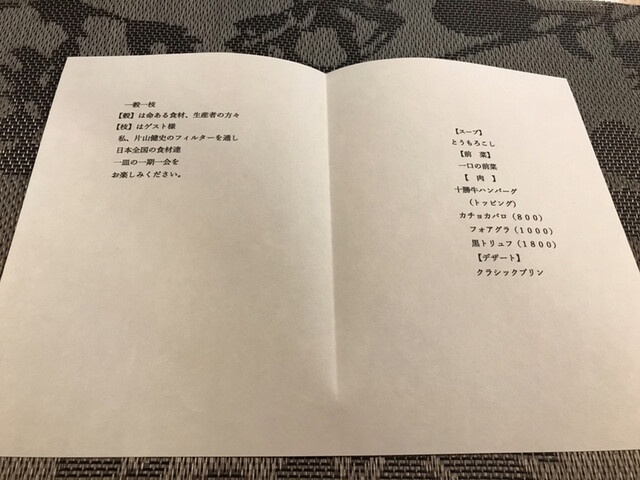 一毅一枝
【毅】は命ある食材、生産者の方々
【枝】はゲスト様
私、片山健史のフィルターを通し
日本全国の食材達
一皿の一期一会を
お楽しみください。
【スープ】
とうもろこし
【前　菜】
一口の前菜
【　肉　】
十勝牛ハンバーグ
（トッピング）
カチョカバロ（８００）
フォアグラ（１０００）
黒トリュフ（１８００）
【デザート】
クラシックプリン